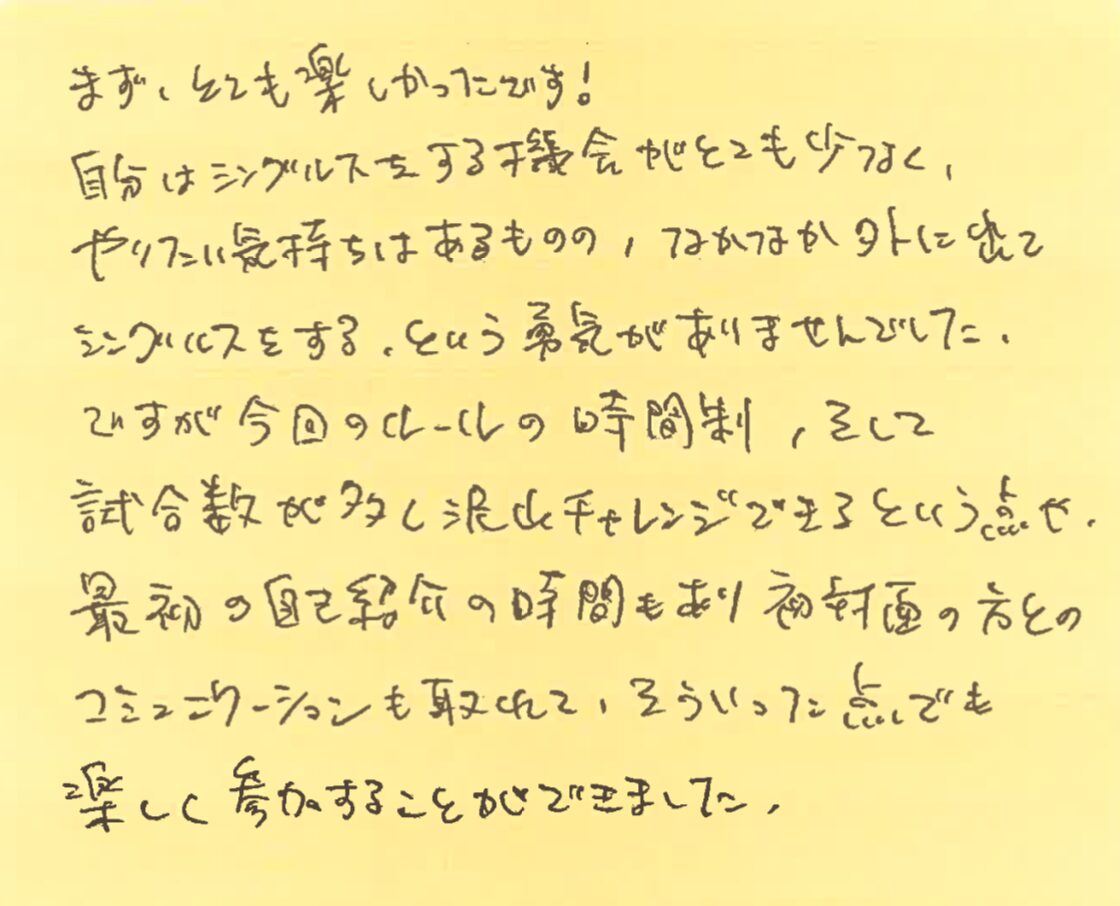 まず、とても楽しかったです!
自分はシングルスをする機会がとても少なく、
やりたい気持ちはあるものの、なかなか外に出て
シングルスをする、という勇気がありませんでした。
ですが今回のルールの時間制、そして
試合数が多く沢山チャレンジできるという点や、
最初の自己紹介の時間もあり初対面の方との
コミュニケーションも取れて、そういった点でも
楽しく参加することができました。